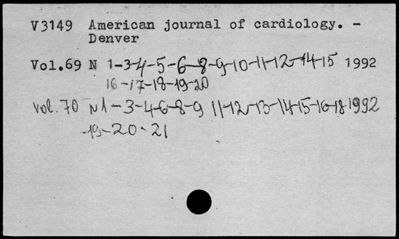 V3149 American journal of cardiology. -
Denver
Vol.69 N 1-3-4-5-6-8-9-10-11-12-14-15 1992
16-17-18-19-20
vol. 70 N1-3-4-6-8-9 11-12-13-14-15-16-18 1992
-19-20-21